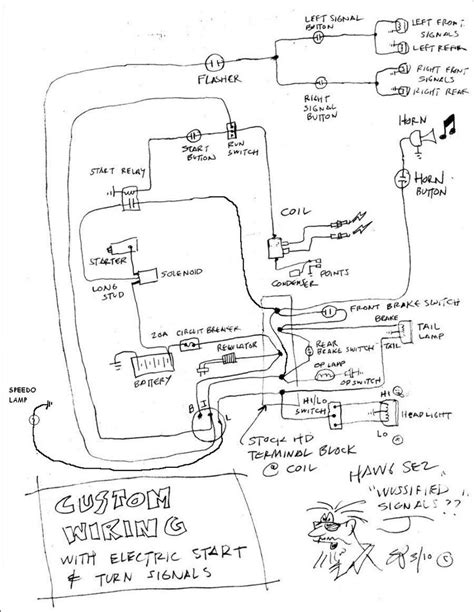 LEFT SIGNAL
BUTTON
LEFT FRONT
SIGNALS
LEFT REAR
FLASHER
RIGHT FRONT
SIGNALS
RIGHT REAR
RIGHT
SIGNAL
BUTTON
HORN
START
BUTTON
RUN
SWITCH
START RELAY
HORN
BUTTON
COIL
STARTER
SOLENOID
LONG
STUD
POINTS
CONDENSER
FRONT BRAKE SWITCH
BRAKE
20A CIRCUIT BREAKER
TAIL
LAMP
REAR
BRAKE SWITCH
TAIL
REGULATOR
OP LAMP
OP SWITCH
BATTERY
SPEEDO
LAMP
B I L
HI/LO
SWITCH
HI
HEADLIGHT
LO
STOCK HD
TERMINAL BLOCK
@ COIL
HAWG SEZ
"WUSSIFIED
SIGNALS??
CUSTOM
WIRING
WITH ELECTRIC START
& TURN SIGNALS
3/10 ©